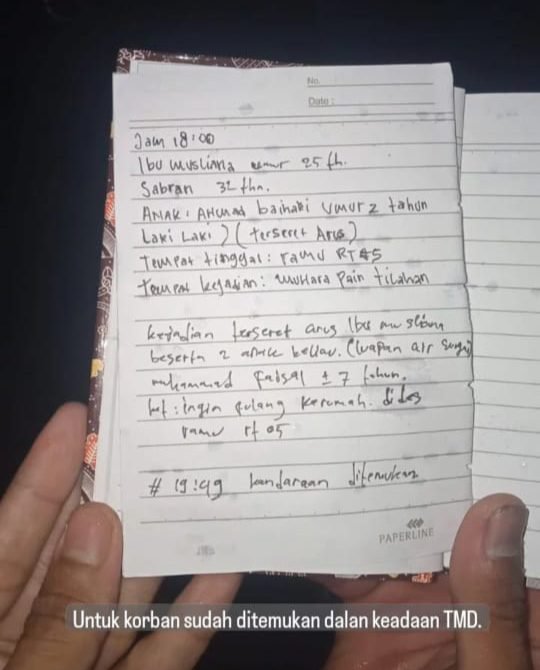 No.
Date :
Jam 18:00
Ibu Musliana umur 25 th.
Sabran 32 thn.
Anak : Ahmad baihaki umur 2 tahun
Laki Laki ) ( terseret Arus )
Tempat tinggal : ramu RT 05
Tempat kejadian : muara Pain tilahan
kejadian terseret arus Ibu musliana
beserta 2 anak beliau. (luapan air sungai
muhammad faisal ± 7 tahun.
ket : Ingin pulang kerumah. di des
ramu rt 05
# 19:49 kendaraan ditemukan
PAPERLINE
Untuk korban sudah ditemukan dalan keadaan TMD.